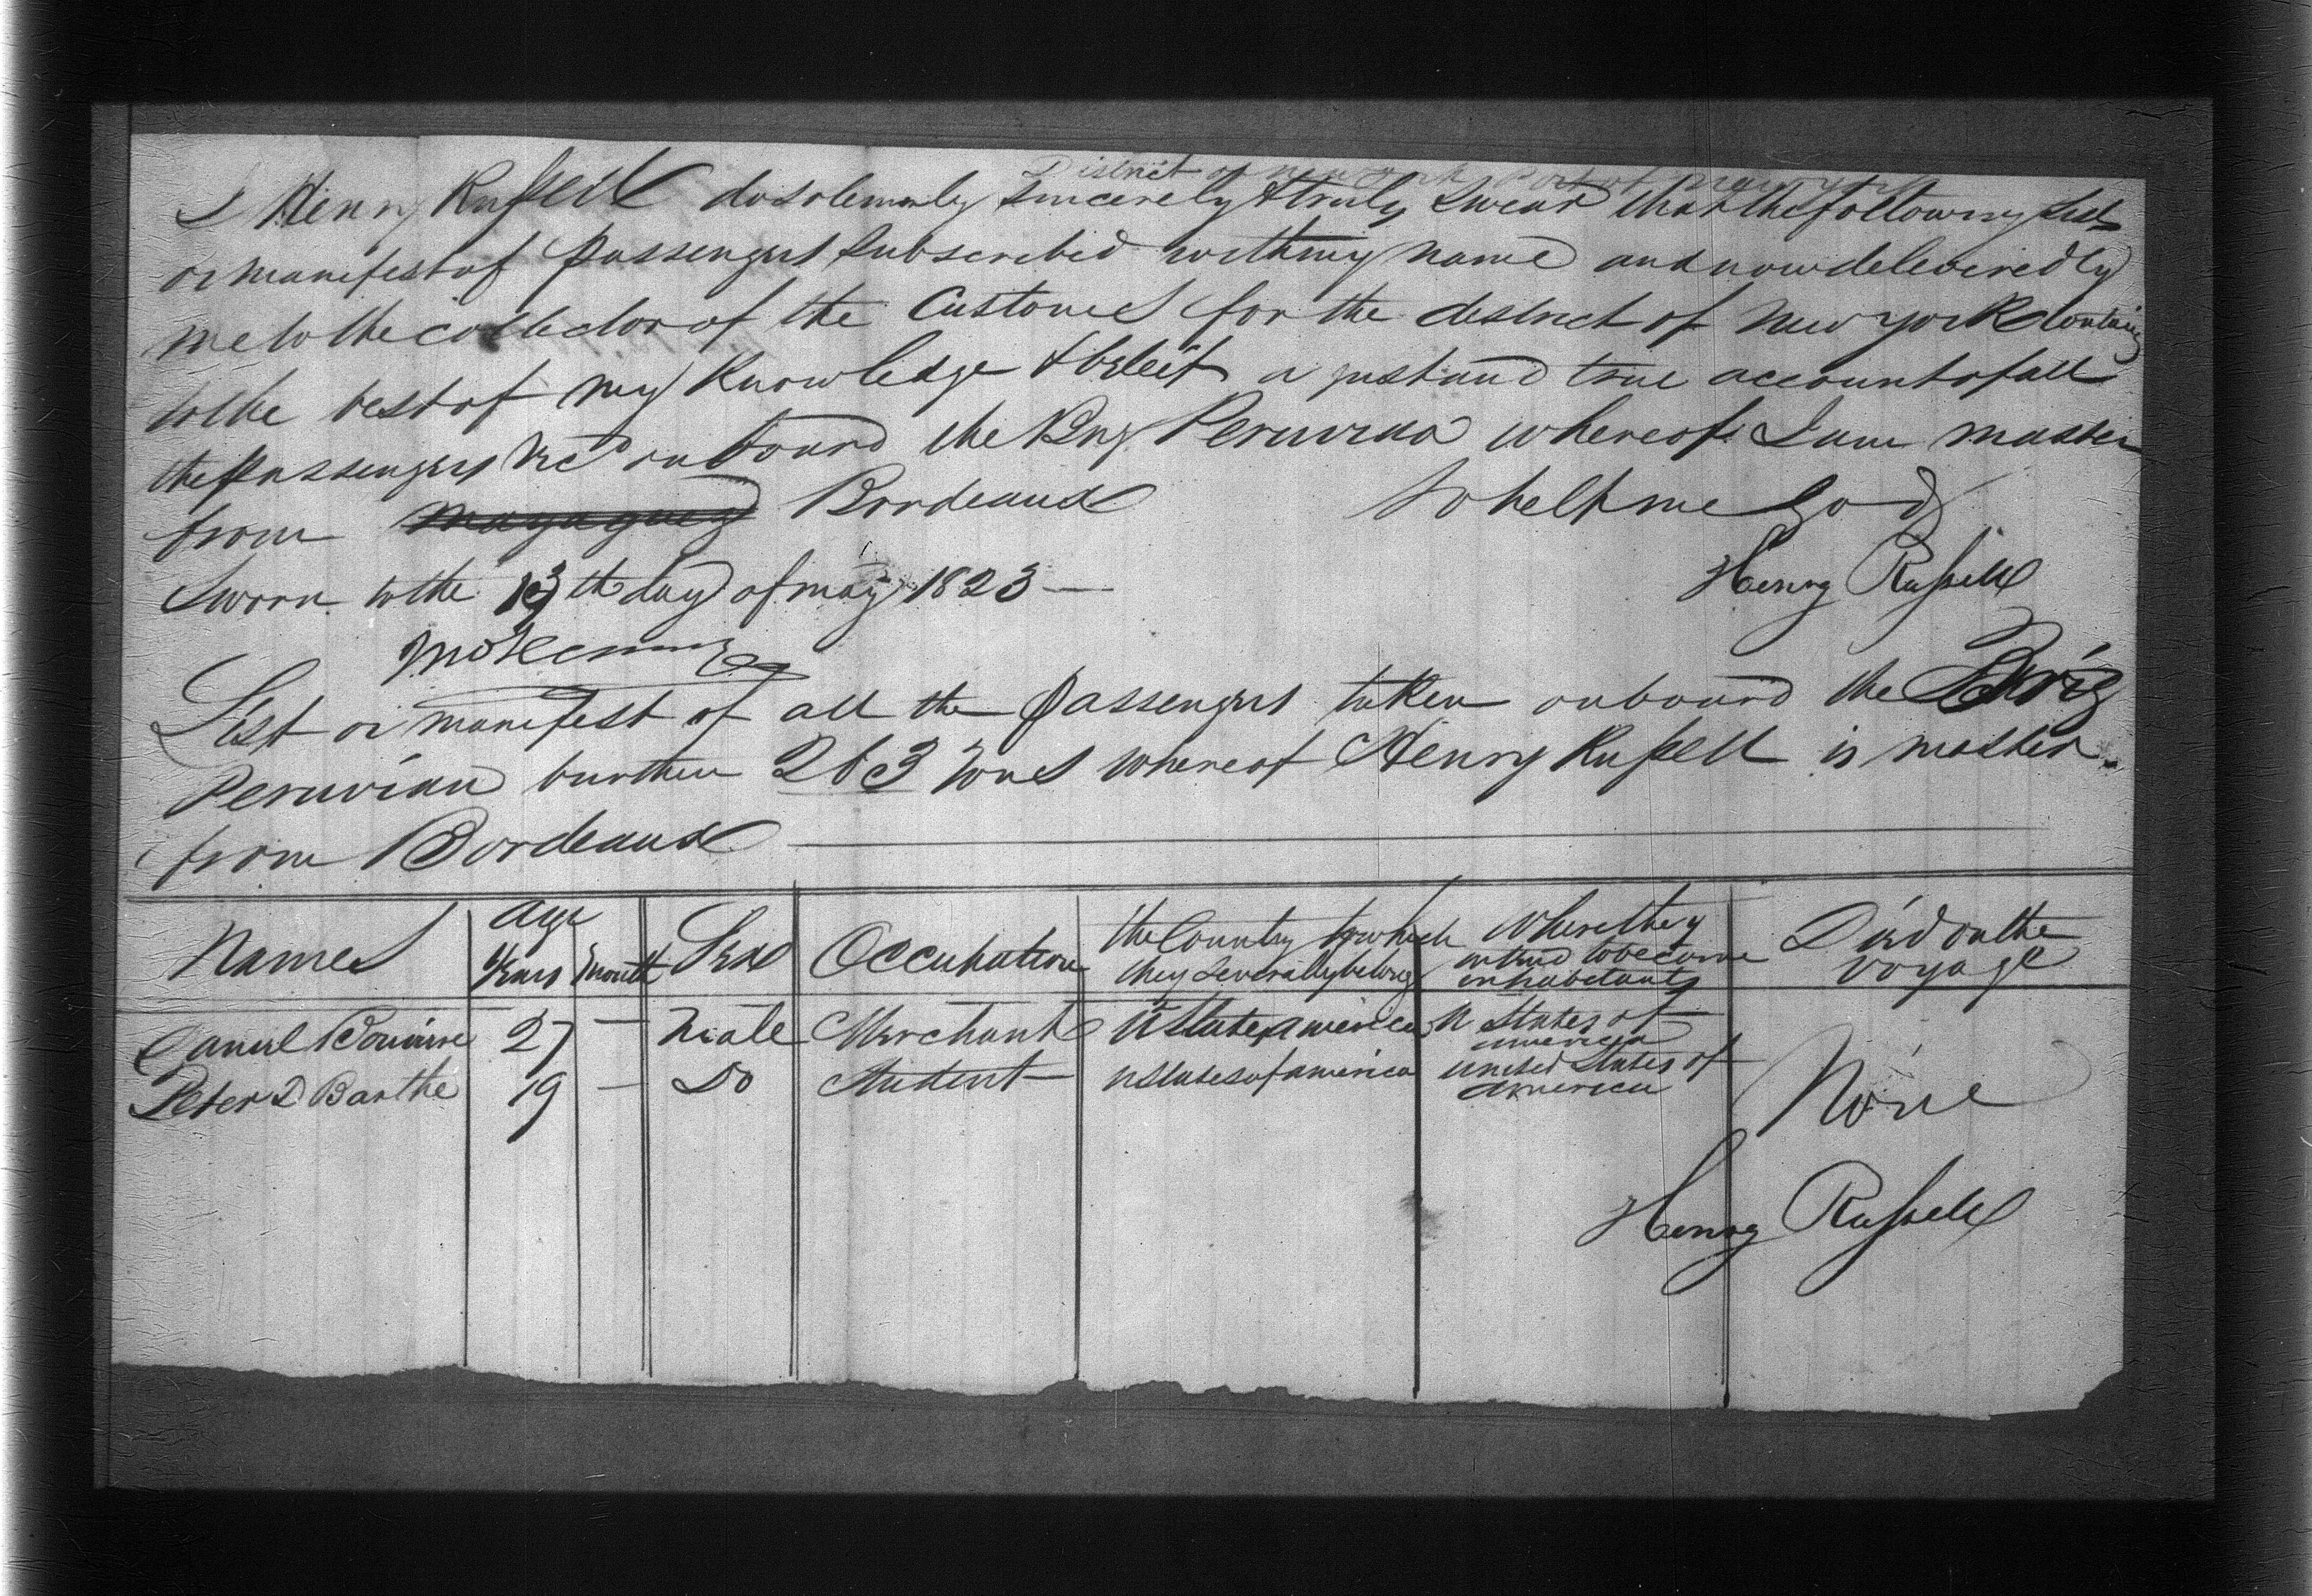 District of New York Port of New York
I Henry Russell do solemnly sincerely & truly swear that the following List
or manifest of passengers subscribed with my name and now delevered by
me to the collector of the Customs for the district of New York Contains
to the best of my Knowledge & beleif a just and true account of all
the passengers rec'd on board the Brig Peruvian whereof I am master
from Mayaguez Bordeaux So help me God
Sworn to the 13th day of may 1823 — Henry Russell
List or manifest of all the passengers taken on board the Brig
Peruvian burthen 263 Tons whereof Henry Russell is master
from Bordeaux
Names Age Years Month Sex Occupation The Country to which they severally belong Where they intend to become inhabitants Died on the voyage
Daniel 27 — Male Merchant U States america U States of america
Peter D Barthe 19 — Do Student U States of america united States of america
None
Henry Russell